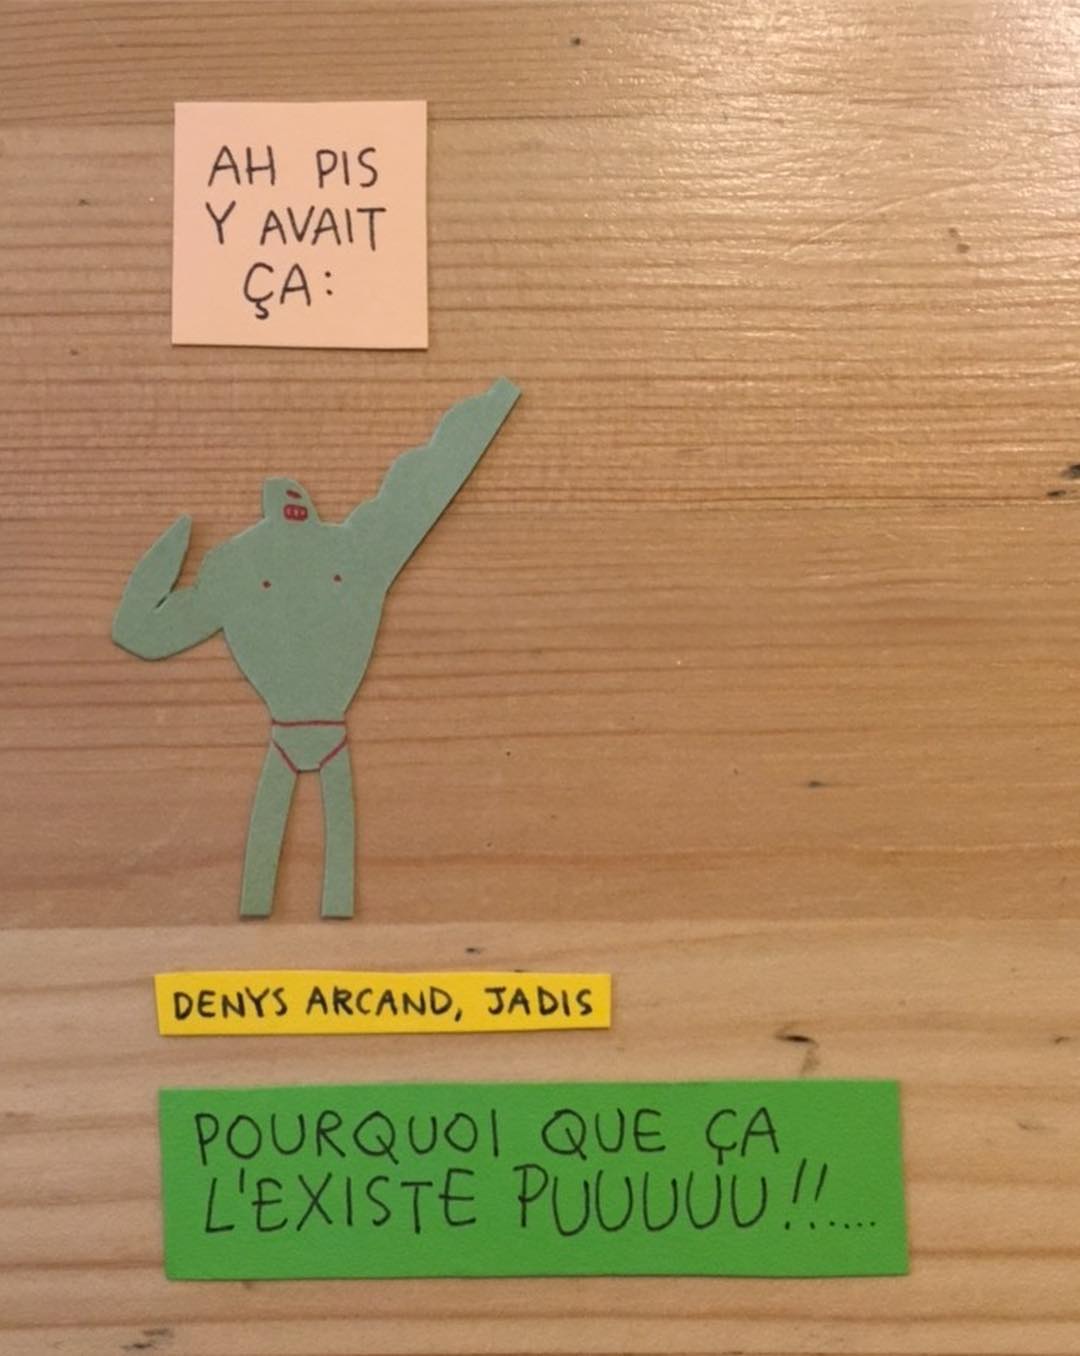 AH PIS
Y AVAIT
ÇA:
DENYS ARCAND, JADIS
POURQUOI QUE ÇA
L'EXISTE PUUUUU!!......